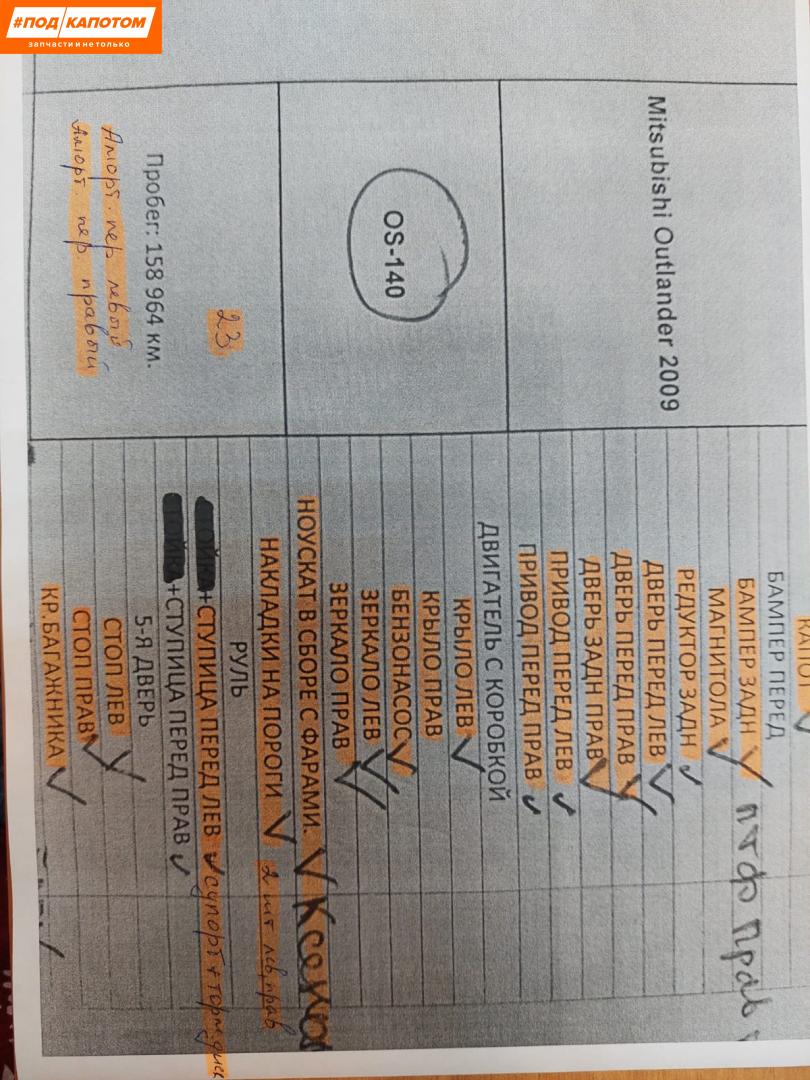 #ПОД КАПОТОМ
запчасти и не только
Mitsubishi Outlander 2009
OS-140
23
Пробег: 158 964 км.
Аморт. пер левый
Аморт. пер. правый
КАПОТ
БАМПЕР ПЕРЕД
БАМПЕР ЗАДН птф Прав
МАГНИТОЛА
РЕДУКТОР ЗАДН
ДВЕРЬ ПЕРЕД ЛЕВ
ДВЕРЬ ПЕРЕД ПРАВ
ДВЕРЬ ЗАДН ПРАВ
ПРИВОД ПЕРЕД ЛЕВ
ПРИВОД ПЕРЕД ПРАВ
ДВИГАТЕЛЬ С КОРОБКОЙ
КРЫЛО ЛЕВ
КРЫЛО ПРАВ
БЕНЗОНАСОС
ЗЕРКАЛО ЛЕВ
ЗЕРКАЛО ПРАВ
НОУСКАТ В СБОРЕ С ФАРАМИ. Ксенон
НАКЛАДКИ НА ПОРОГИ 2 шт лев, прав
РУЛЬ
+СТУПИЦА ПЕРЕД ЛЕВ супорт + торм диск
+СТУПИЦА ПЕРЕД ПРАВ
5-Я ДВЕРЬ
СТОП ЛЕВ
СТОП ПРАВ
КР.БАГАЖНИКА